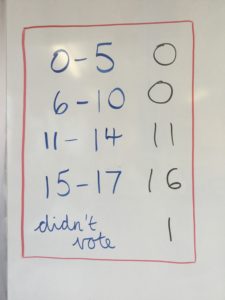 0-5 0
6-10 0
11-14 11
15-17 16
didn't
vote 1